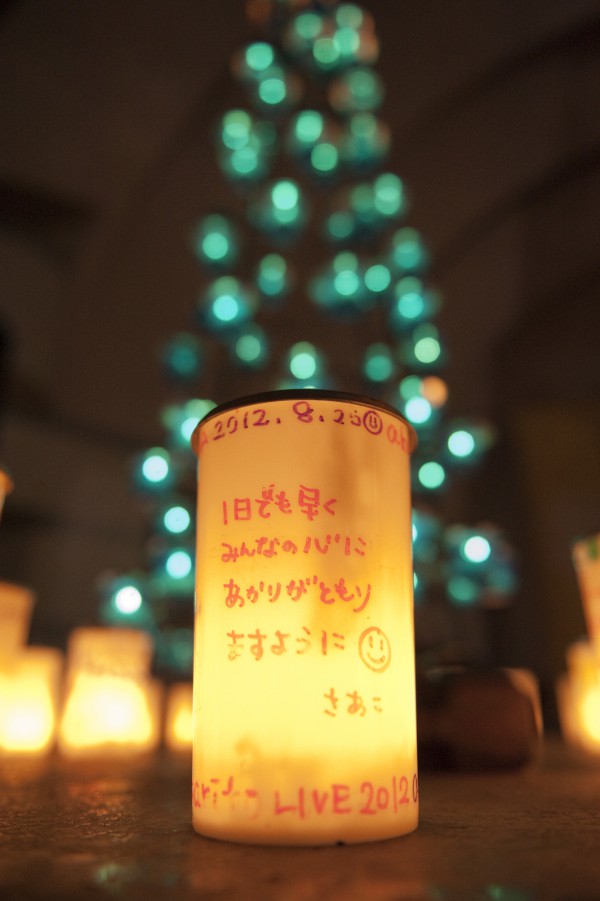 2012.8.25
1日でも早く
みんなの心に
あかりがともり
ますように
さあこ
LIVE 2012